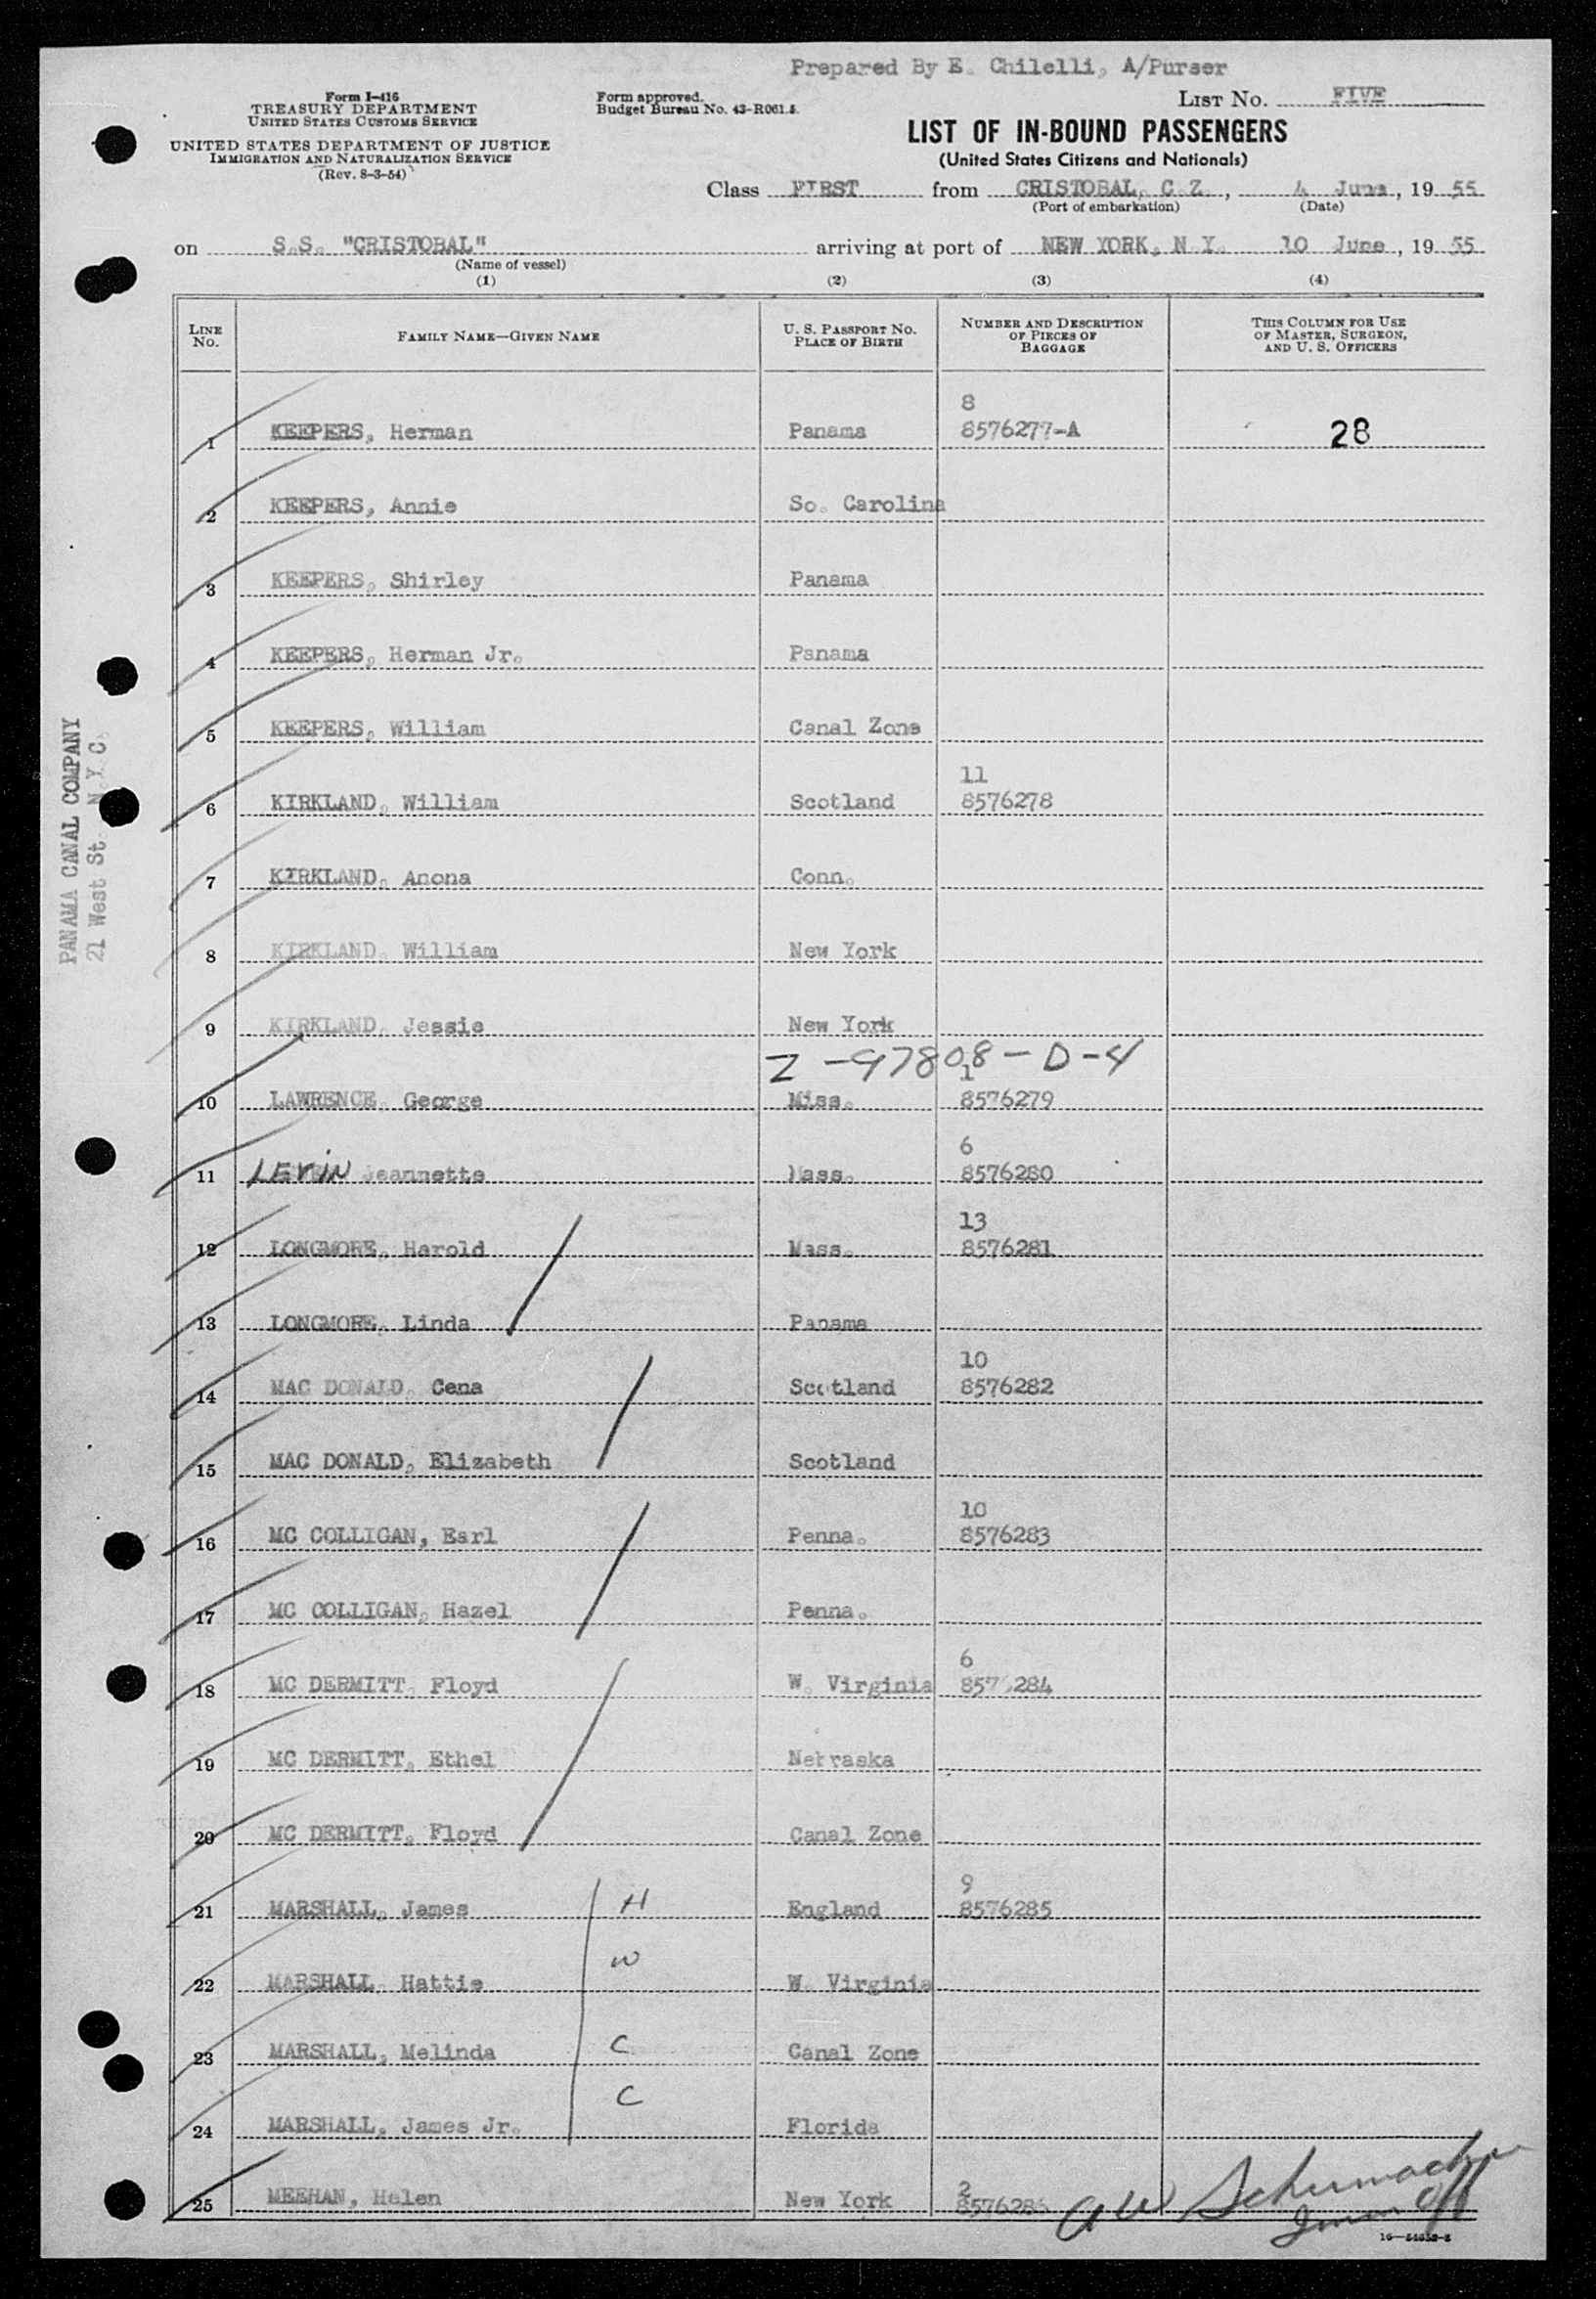 Prepared By E. Chilelli, A/Purser
Form I-416
TREASURY DEPARTMENT
UNITED STATES CUSTOMS SERVICE
UNITED STATES DEPARTMENT OF JUSTICE
IMMIGRATION AND NATURALIZATION SERVICE
(Rev. 8-3-54)
Form approved.
Budget Bureau No. 43-R061.5.
LIST NO. FIVE
LIST OF IN-BOUND PASSENGERS
(United States Citizens and Nationals)
Class FIRST from CRISTOBAL, C.Z., 4 June, 1955
(Port of embarkation) (Date)
on S.S. "CRISTOBAL" arriving at port of NEW YORK, N.Y. 10 June, 1955
(Name of vessel)
(1) (2) (3) (4)
LINE NO. FAMILY NAME—GIVEN NAME U. S. PASSPORT NO. PLACE OF BIRTH NUMBER AND DESCRIPTION OF PIECES OF BAGGAGE THIS COLUMN FOR USE OF MASTER, SURGEON, AND U. S. OFFICERS
8
1 KEEPERS, Herman Panama 8576277-A 28
2 KEEPERS, Annie So. Carolina
3 KEEPERS, Shirley Panama
4 KEEPERS, Herman Jr. Panama
5 KEEPERS, William Canal Zone
11
6 KIRKLAND, William Scotland 8576278
7 KIRKLAND, Anona Conn.
8 KIRKLAND, William New York
9 KIRKLAND, Jessie New York
Z-97808-D-4
1
10 LAWRENCE, George Miss. 8576279
6
11 LEVIN Jeannette Mass. 8576280
13
12 LONGMORE, Harold Mass. 8576281
13 LONGMORE, Linda Panama
10
14 MAC DONALD, Cena Scotland 8576282
15 MAC DONALD, Elizabeth Scotland
10
16 MC COLLIGAN, Earl Penna. 8576283
17 MC COLLIGAN, Hazel Penna.
6
18 MC DERMITT, Floyd W. Virginia 8576284
19 MC DERMITT, Ethel Nebraska
20 MC DERMITT, Floyd Canal Zone
9
21 MARSHALL, James H England 8576285
22 MARSHALL, Hattie W W. Virginia
23 MARSHALL, Melinda C Canal Zone
24 MARSHALL, James Jr. C Florida
2
25 MEEHAN, Helen New York 8576286
AW Schumacher
Imm Off
PANAMA CANAL COMPANY
21 West St. N.Y.C.